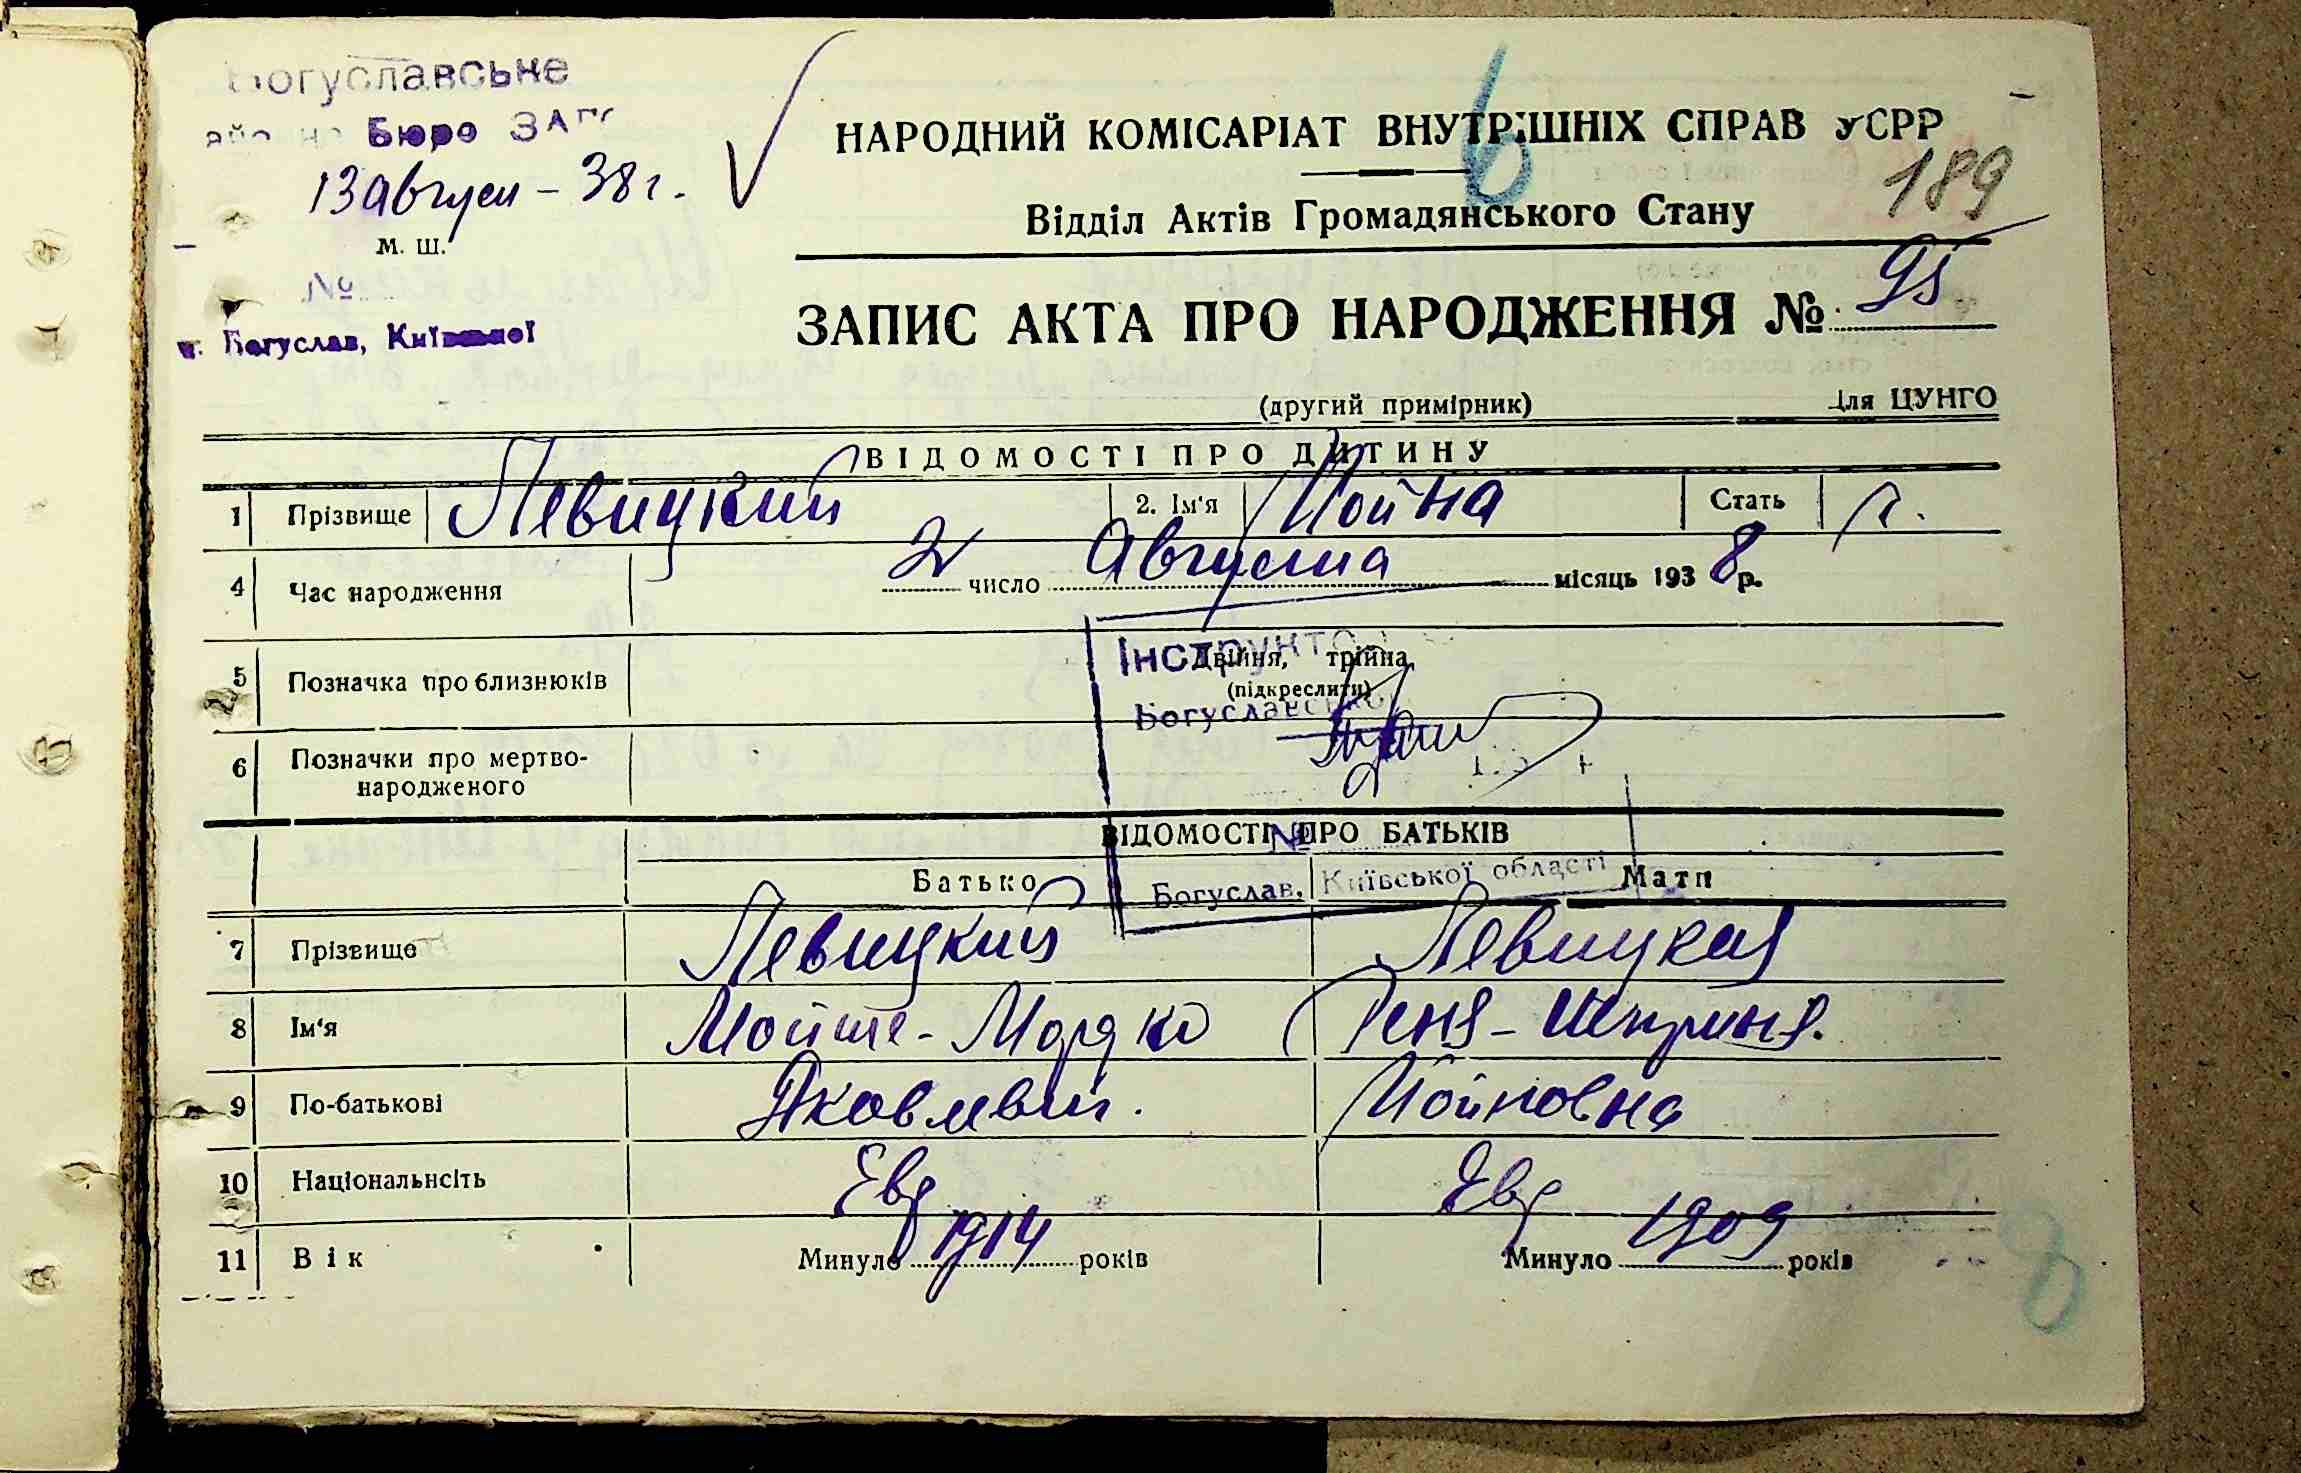 Богуславське
Бюро ЗАГС
13 Август - 38 г.
м. ш.
№
м. Богуслав, Київської
НАРОДНИЙ КОМІСАРІАТ ВНУТРІШНІХ СПРАВ УСРР
6
189
Відділ Актів Громадянського Стану
ЗАПИС АКТА ПРО НАРОДЖЕННЯ № 95
(другий примірник) Для ЦУНГО
ВІДОМОСТІ ПРО ДИТИНУ
1 Прізвище Левицкий 2. Ім'я Йойна Стать
4 Час народження 2 число Августа місяць 1938 р.
5 Позначка про близнюків Двійня, трійня
(підкреслити)
Інструктор
Богуславського
6 Позначки про мертво-
народженого
ВІДОМОСТІ ПРО БАТЬКІВ
№
Богуслав, Київської області
Батько Мати
7 Прізвище Левицкий Левицкая
8 Ім'я Мойше-Мордко Геня-Шприня.
9 По-батькові Яковлевич. Йойновна
10 Національнсіть Евр Евр
11 Вік Минуло 1914 років Минуло 1909 років